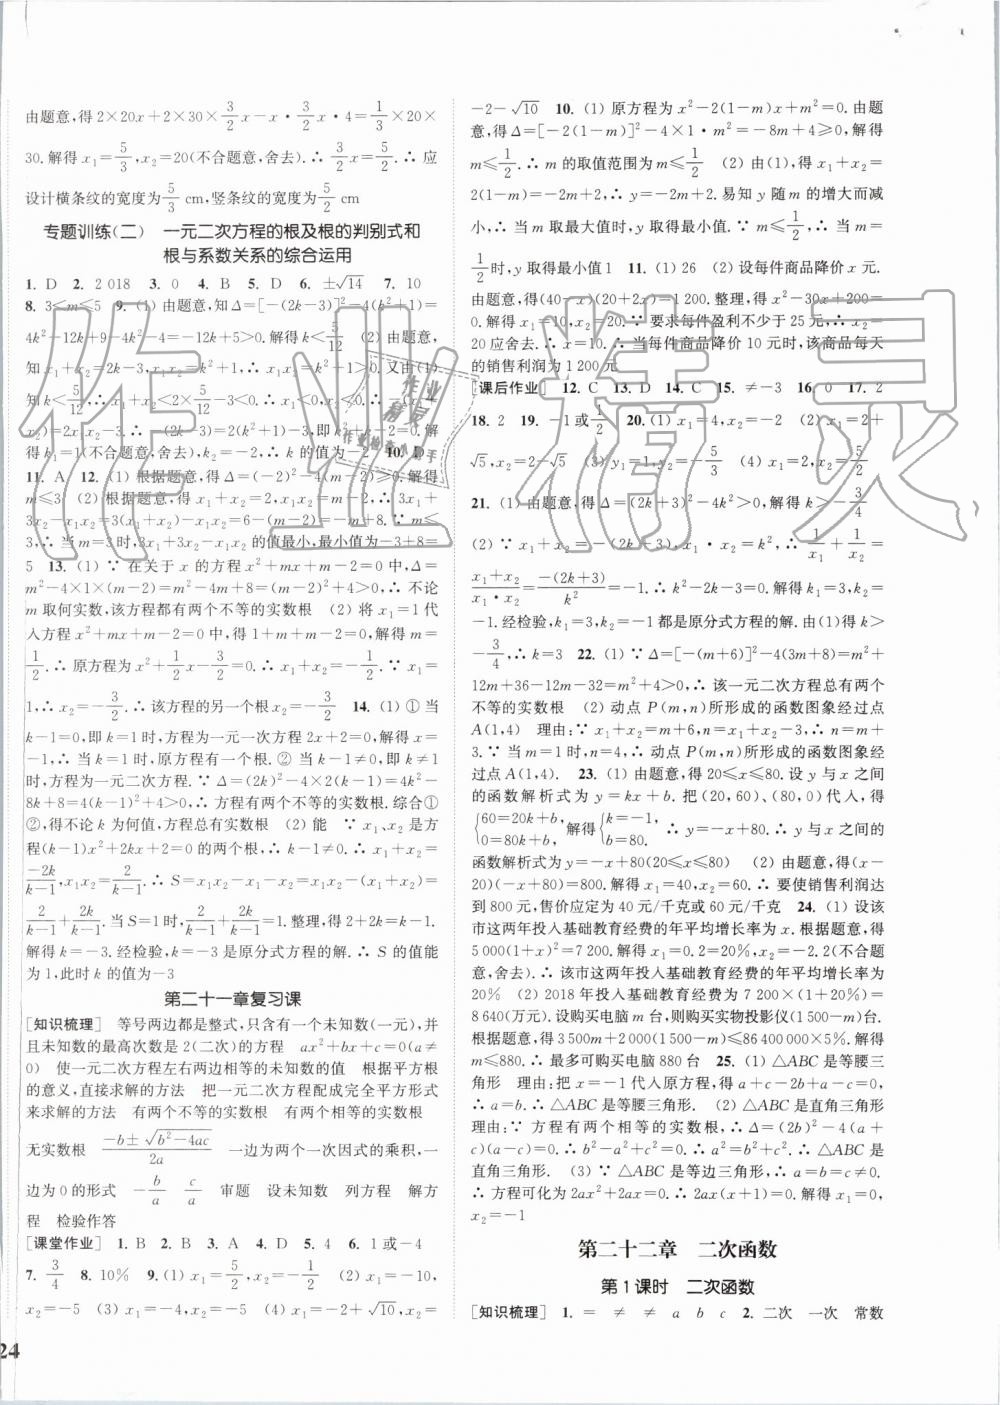 由题意,得 2×20x+2×30×3/2x-x·3/2x·4=1/6×20×
30.解得 x₁=5/3,x₂=20(不合题意,舍去).∴ 3/2x=5/2.∴ 应
设计横条纹的宽度为5/3 cm,竖条纹的宽度为5/2 cm
专题训练(二) 一元二次方程的根及根的判别式和
根与系数关系的综合运用
1. D 2. 2 018 3. 0 4. B 5. D 6. ±√14 7. 10
8. 3<m≤5 9. (1) 由题意,知 Δ=[-(2k-3)]²-4(k²+1)=
4k²-12k+9-4k²-4=-12k+5>0.解得 k<5/12 (2) 由题意,
知 x₁+x₂=2k-3,x₁x₂=k²+1,∵ k²+1>0.又由(1)
知 k<5/12
解
得 k₁=1(不合题意,舍去),k₂=-2.∴ k 的值为-2 10. D
11. A 12. (1) 根据题意,得 Δ=(-2)²-4(m-2)≥0.解得
m≤3 (2) 根据题意,得 x₁+x₂=2,x₁x₂=m-2.∴ 3x₁+
3x₂-x₁x₂=3(x₁+x₂)-x₁x₂=6-(m-2)=-m+8.∵ m≤
3,∴ 当 m=3 时,3x₁+3x₂-x₁x₂ 的值最小,最小值为-3+8=
5 13. (1) ∵ 在关于 x 的方程 x²+mx+m-2=0 中,Δ=
m²-4×1×(m-2)=m²-4m+8=(m-2)²+4>0,∴ 不论
m 取何实数,该方程都有两个不等的实数根 (2) 将 x₁=1 代
入方程 x²+mx+m-2=0 中,得 1+m+m-2=0,解得 m=
1/2.∴ 原方程为 x²+1/2x-3/2=0.∴ x₁+x₂=-1/2.∵ x₁=
1,∴ x₂=-3/2.∴ 该方程的另一个根 x₂=-3/2 14. (1) ① 当
k-1=0,即 k=1 时,方程为一元一次方程 2x+2=0,x=
-1,∴ 当 k=1 时,原方程有一个根. ② 当 k-1≠0,即 k≠1
时,方程为一元二次方程.∵ Δ=(2k)²-4×2(k-1)=4k²-
8k+8=4(k-1)²+4>0,∴ 方程有两个不等的实数根.综合①
②,得不论 k 为何值,方程总有实数根 (2) 能 ∵ x₁、x₂ 是方
程(k-1)x²+2kx+2=0 的两个根,∴ k-1≠0.∴ x₁+x₂=
-2k/(k-1),x₁x₂=2/(k-1).∴ S=x₁x₂-x₁-x₂=x₁x₂-(x₁+x₂)=
2/(k-1)+2k/(k-1).当 S=1 时,2/(k-1)+2k/(k-1)=1.整理,得 2+2k=k-1.
解得 k=-3.经检验,k=-3 是原分式方程的解.∴ S 的值能
为 1,此时 k 的值为-3
第二十一章复习课
[知识梳理] 等号两边都是整式,只含有一个未知数(一元),并
且未知数的最高次数是 2(二次)的方程 ax²+bx+c=0(a≠
0) 使一元二次方程左右两边相等的未知数的值 根据平方根
的意义,直接求解的方法 把一元二次方程配成完全平方形式
来求解的方法 有两个不等的实数根 有两个相等的实数根
无实数根 (-b±√(b²-4ac))/2a 一边为两个一次因式的乘积,一
边为 0 的形式 -b/a c/a 审题 设未知数 列方程 解方
程 检验作答
[课堂作业] 1. B 2. B 3. A 4. D 5. 4 6. 1或-4
7. 3/4 8. 10% 9. (1) x₁=5/2,x₂=1/2 (2) x₁=-10,
x₂=-5 (3) x₁=-15,x₂=9 (4) x₁=-2+√10,x₂=
24
-2-√10 10. (1) 原方程为 x²-2(1-m)x+m²=0.由题
意,得 Δ=[-2(1-m)]²-4×1·m²=-8m+4≥0,解得
m≤1/2.∴ m 的取值范围为 m≤1/2 (2) 由(1),得 x₁+x₂=
2(1-m)=-2m+2.∴ y=-2m+2.易知 y 随 m 的增大而减
小,∴ 当 m 取得最大值时,y 取得最小值.∵ m≤1/2,∴ 当 m=
1/2时,y 取得最小值 1 11. (1) 26 (2) 设每件商品降价 x 元.
由题意,得(40-x)(20+2x)=1 200.整理,得 x²-30x+200=
0.解得 x₁=10,x₂=20.∵ 要求每件盈利不少于 25 元,∴ x=
20 应舍去.∴ x=10.∴ 当每件商品降价 10 元时,该商品每天
的销售利润为 1 200 元
[课后作业] 12. C 13. D 14. C 15. ≠-3 16. 0 17. 2
18. 2 19. -1或1/2 20. (1) x₁=4,x₂=-2 (2) x₁=2+
√5,x₂=2-√5 (3) y₁=1/5,y₂=-5/3 (4) x₁=-5,x₂=2
21. (1) 由题意,得 Δ=(2k+3)²-4k²>0,解得 k>-3/4
(2) ∵ x₁+x₂=-(2k+3),x₁x₂=k²,∴ 1/x₁+1/x₂=
(x₁+x₂)/(x₁·x₂)=-(2k+3)/k²=-1.∴ k²-2k-3=0.解得 k₁=3,k₂=
-1.经检验,k₁=3,k₂=-1 都是原分式方程的解.由(1)得 k>
-3/4,∴ k=3 22. (1) ∵ Δ=[-(m+6)]²-4(3m+8)=m²+
12m+36-12m-32=m²+4>0,∴ 该一元二次方程总有两个
不等的实数根 (2) 动点 P(m,n)所形成的函数图象经过点
A(1,4) 理由:∵ x₁+x₂=m+6,n=x₁+x₂-5,∴ n=m+
1.∵ 当 m=1 时,n=4,∴ 动点 P(m,n)所形成的函数图象经
过点 A(1,4). 23. (1) 由题意,得 20≤x≤80.设 y 与 x 之间
的函数解析式为 y=kx+b.把(20,60)、(80,0)代入,得
{60=20k+b, 0=80k+b,解得{k=-1, b=80. ∴ y=-x+80.∴ y 与 x 之间的
函数解析式为 y=-x+80(20≤x≤80) (2) 由题意,得(x-
20)(-x+80)=800.解得 x₁=40,x₂=60.∴ 要使销售利润达
到 800 元,售价应定为 40 元/千克或 60 元/千克 24. (1) 设该
市这两年投入基础教育经费的年平均增长率为 x.根据题意,得
5 000(1+x)²=7 200.解得 x₁=0.2=20%,x₂=-2.2(不合题
意,舍去).∴ 该市这两年投入基础教育经费的年平均增长率为
20% (2) 2018 年投入基础教育经费为 7 200×(1+20%)=
8 640(万元).设购买电脑 m 台,则购买实物投影仪(1 500-m)台.
根据题意,得 3 500m+2 000(1 500-m)≤86 400 000×5%.解得
m≤880.∴ 最多可购买电脑 880 台 25. (1) △ABC 是等腰三
角形 理由:把 x=-1 代入原方程,得 a+c-2b+a-c=0,
∴ a=b.∴ △ABC 是等腰三角形. (2) △ABC 是直角三角形
理由:∵ 方程有两个相等的实数根,∴ Δ=(2b)²-4(a+
c)(a-c)=0.∴ b²-a²+c²=0.∴ a²=b²+c².∴ △ABC 是
直角三角形. (3) ∵ △ABC 是等边三角形,∴ a=b=c≠0.
∴ 方程可化为 2ax²+2ax=0.∴ 2ax(x+1)=0.解得 x₁=0,
x₂=-1
第二十二章 二次函数
第 1 课时 二次函数
[知识梳理] 1. = ≠ ≠ a b c 2. 二次 一次 常数